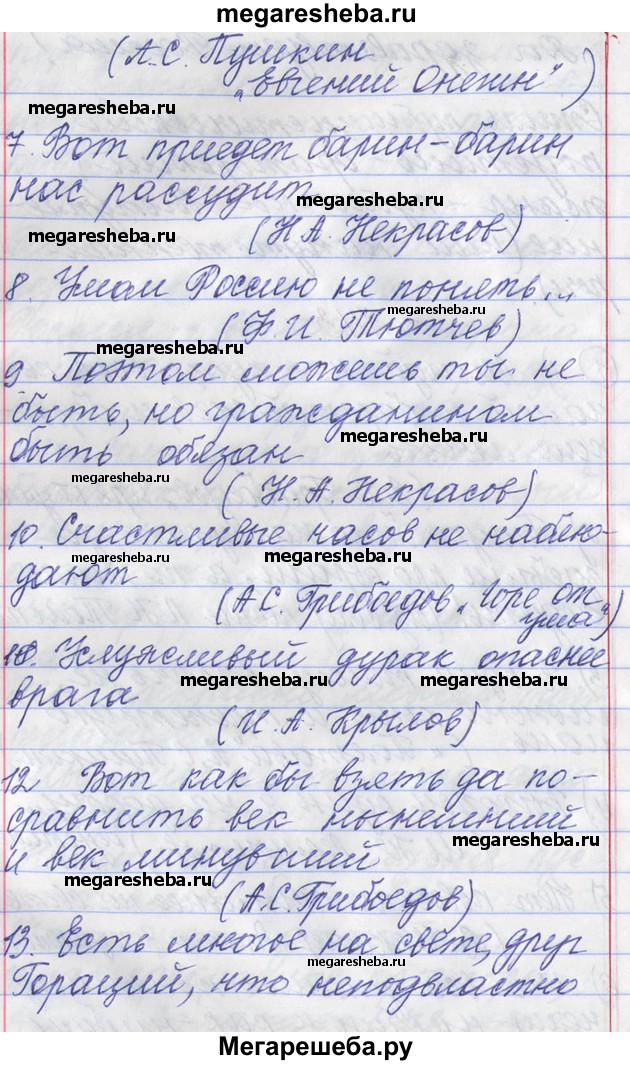 megaresheba.ru
(А.С. Пушкин
„Евгений Онегин")
megaresheba.ru
7. Вот приедет барин-барин
нас рассудит
megaresheba.ru
megaresheba.ru
(Н.А. Некрасов)
8. Умом Россию не понять...
(Ф.И. Тютчев)
megaresheba.ru
9 Поэтом можешь ты не
быть, но гражданином
megaresheba.ru
быть обязан
megaresheba.ru
(Н.А. Некрасов)
10. Счастливые часов не наблю-
megaresheba.ru
megaresheba.ru
дают
(А.С. Грибоедов „Горе от
ума")
Услужливый дурак опаснее
megaresheba.ru
megaresheba.ru
врага
(И.А. Крылов)
12 Вот как бы взять да по-
сравнить век нынешний
megaresheba.ru
и век минувший
megaresheba.ru
(А.С. Грибоедов)
13. Есть многое на свете, друг
megaresheba.ru
Гораций, что неподвластно
Мегарешеба.ру